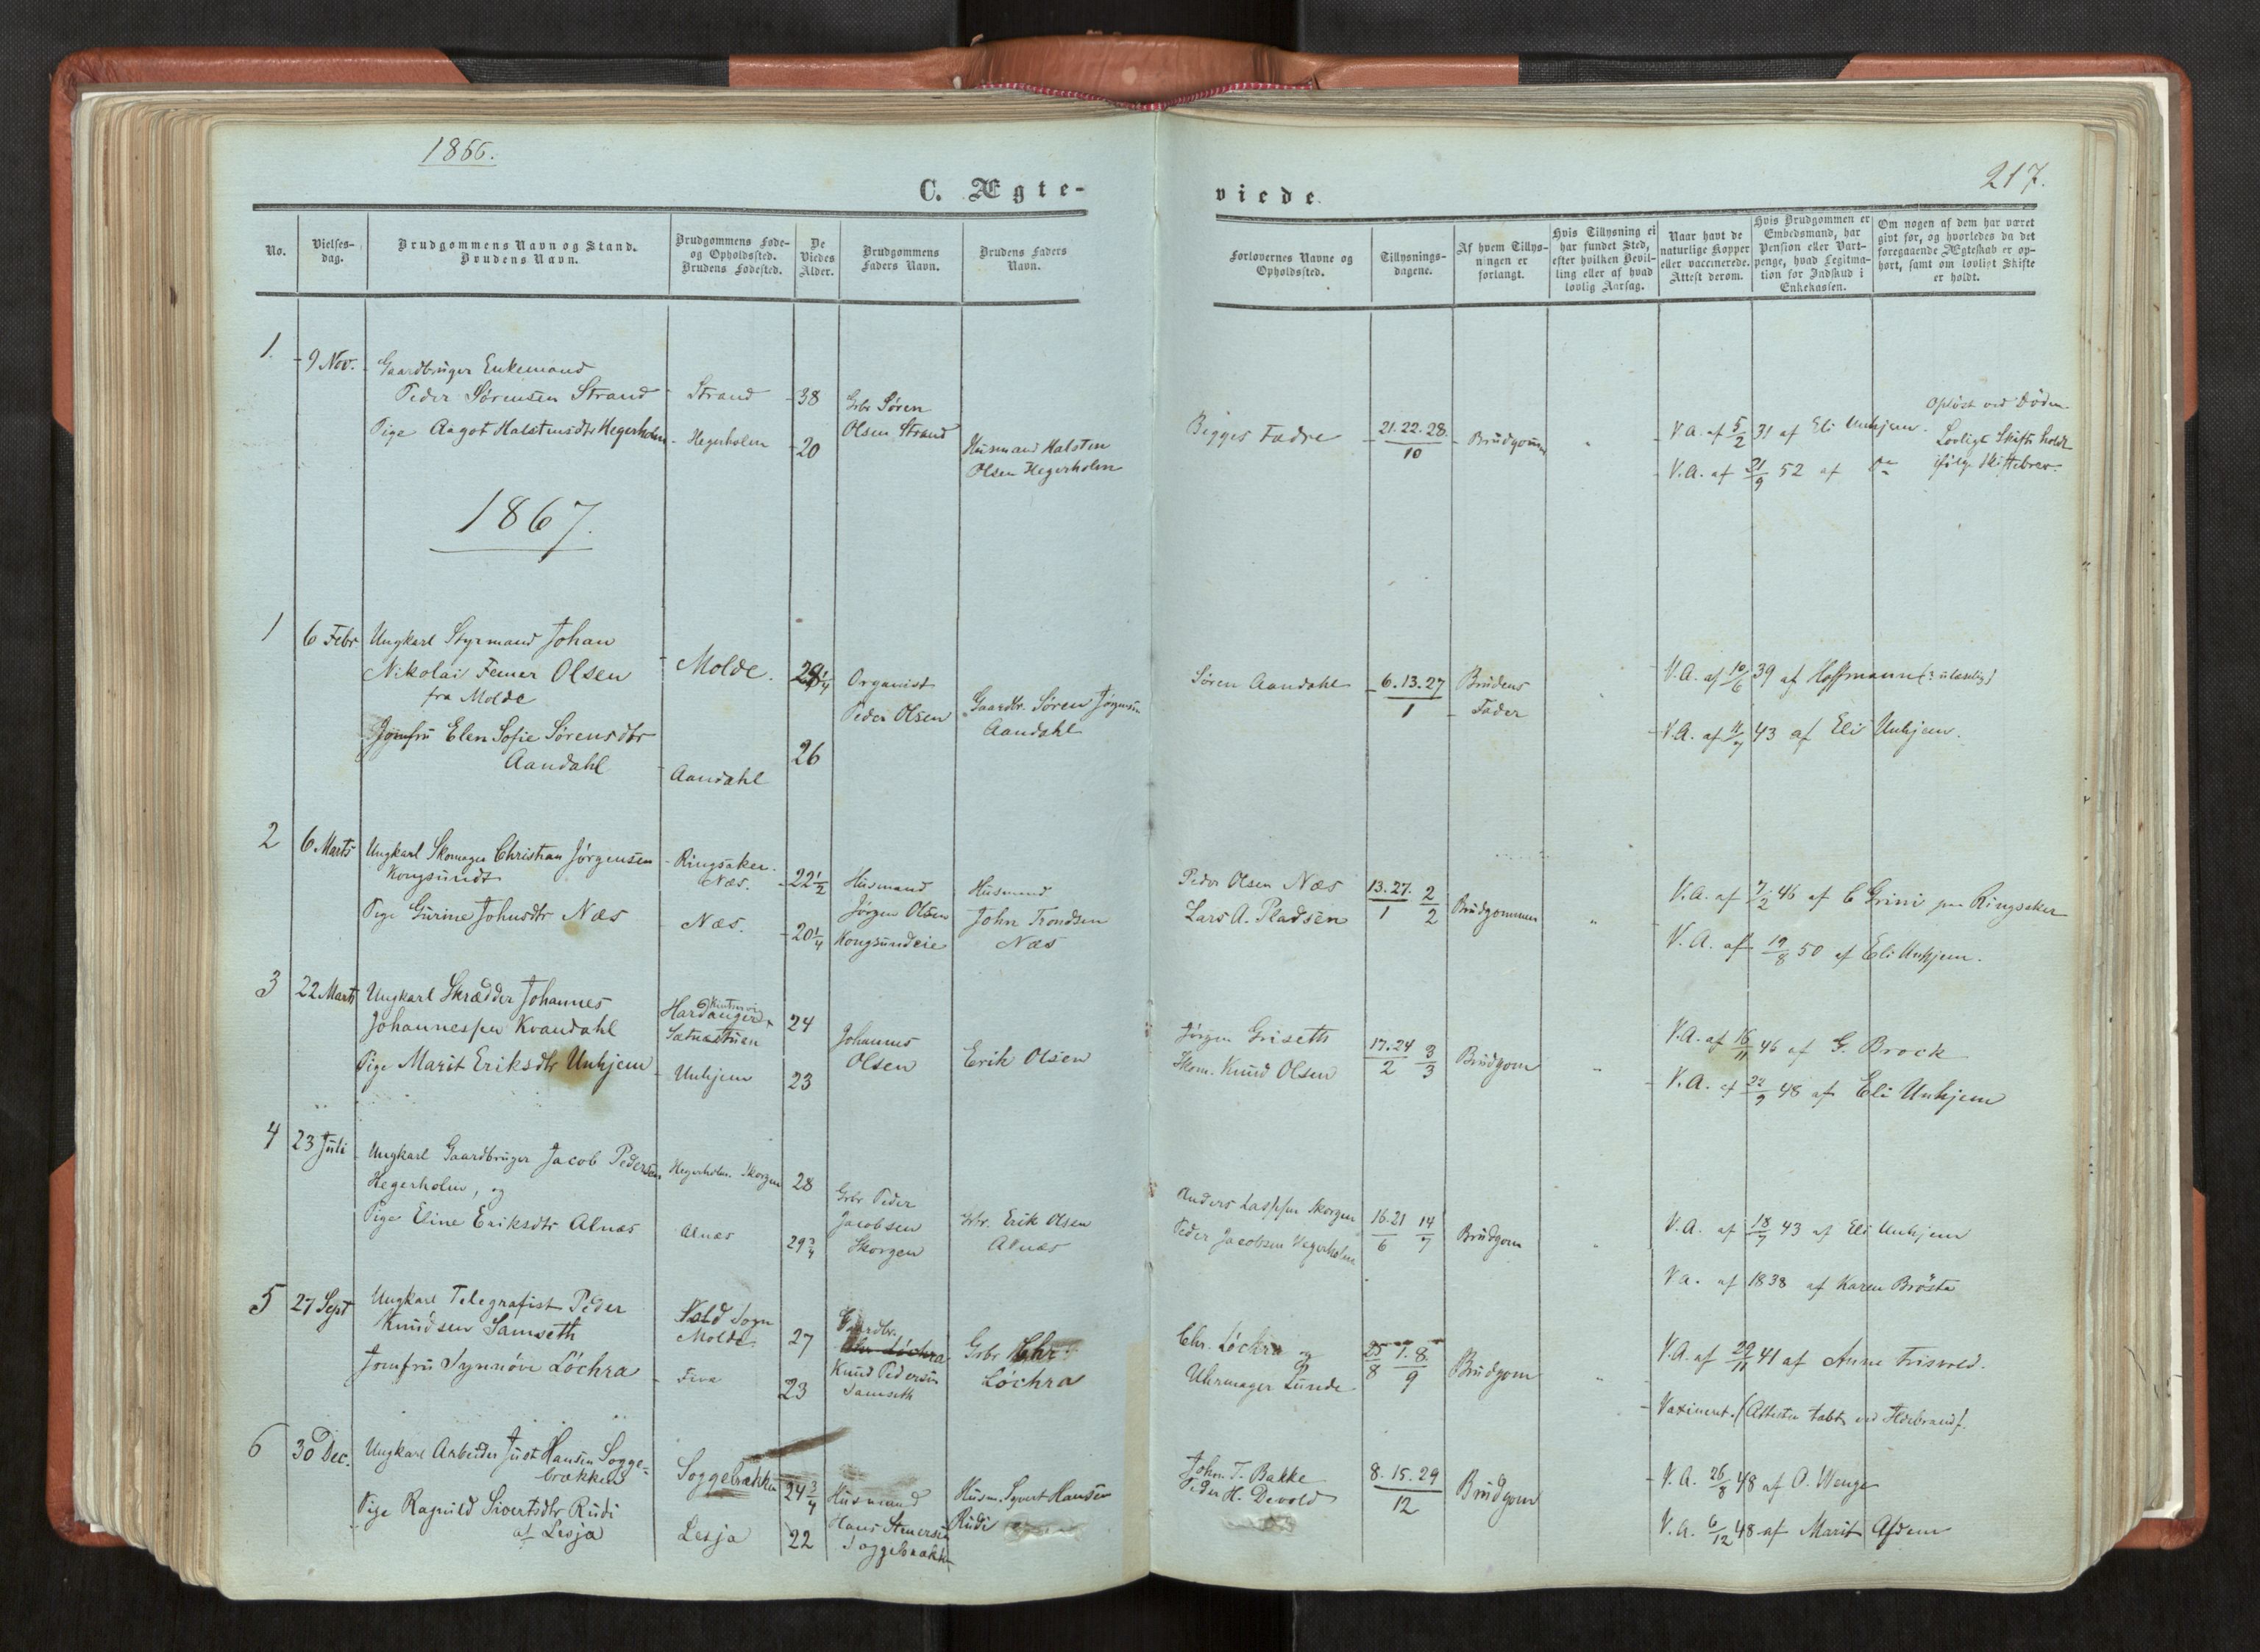 1866.
C. Ægte-
No.
Vielses-
dag.
Brudgommens Navn og Stand.
Brudens Navn.
Brudgommens Føde-
og Opholdssted.
Brudens Fødested.
De
Viedes
Alder.
Brudgommens
Faders Navn.
Brudens Faders
Navn.
1.
9 Nov.
Gaardbruger Enkemand
Peder Sørensen Strand
Pige Aagot Halstensdtr Hegerholm
Strand
Hegerholm
38
20
Gbr Søren
Olsen Strand
Husmand Halsten
Olsen Hegerholm
1867.
1
6 Febr
Ungkarl Styrmand Johan
Nikolai Femer Olsen
fra Molde
Jomfru Elen Sofie Sørensdtr
Aandahl
Molde.
Aandahl
26
Organist
Peder Olsen
Gaardbr. Søren Jørgensen
Aandahl
2
6 Marts
Ungkarl Skomager Christian Jørgensen
Kongsundt
Pige Gurine Johnsdtr Næs
Ringsaker.
Næs.
Næs.
22 1/2
20 1/4
Husmand
Jørgen Olsen
Kongsundeie
Husmand
John Trondsen
Næs
3
22 Marts
Ungkarl Skrædder Johannes
Johannessen Kvandahl
Pige Marit Eriksdtr Unhjem
Hardanger
Unhjem
24
23
Johannes
Olsen
Erik Olsen
4
23 Juli
Ungkarl Gaardbruger Jacob Pedersen
Hegerholm, og
Pige Eline Eriksdtr Alnæs
Hegerholm. Skorgen
Alnæs
28
29 3/4
Gbr Peder
Jacobsen
Skorgen
Gbr. Erik Olsen
Alnæs
5
27 Sept
Ungkarl Telegrafist Peder
Knudsen Samseth
Jomfru Synnöve Löchra
Vold Sogn
Molde
Fiva
27
23
Gaardbr.
Chr Löchra
Knud Pedersen
Samseth
Gbr Chr.
Löchra
6
30 Dec.
Ungkarl Arbeider Just Hansen Sogge-
brækken
Pige Ragnild Sivertsdtr Rudi
af Lesja
Soggebrækken
Lesja
24 3/4
22
Husmand
Hans Stenersen
Soggebrækk
Husm. Syvert Hansen
Rudi
217.
viede.
Forlovernes Navne og
Opholdssted.
Tillysnings-
dagene.
Af hvem Tillys-
ningen er
forlangt.
Hvis Tillysning ei
har fundet Sted,
efter hvilken Bevil-
ling eller af hvad
lovlig Aarsag.
Naar havt de
naturlige Kopper
eller vaccinerede.
Attest derom.
Hvis Brudgommen er
Embedsmand, har
Pension eller Vart-
penge, hvad Legitima-
tion for Indskud i
Enkekassen.
Om nogen af dem har været
givt før, og hvorledes da det
foregaaende Ægteskab er op-
hørt, samt om lovligt Skifte
er holdt.
Begges Fædre
21.22.28.
10
Brudgommen
V.A. af 5/2 31 af Eli Unhjem.
V.A. af 21/9 52 af Do
Opløst ved Døden.
Lovligt Skifte holdt
ifølge Skiftebrev.
Søren Aandahl
6.13.27
1
Brudens
Fader
V.A. af 10/6 39 af Hoffmann (? ulæselig)
V.A. af 11/7 43 af Eli Unhjem.
Peder Olsen Næs
Lars A. Pladsen
13.27. 2
1 2
Brudgommen
V.A. af 7/2 46 af C Grini paa Ringsaker
V.A. af 19/8 50 af Eli Unhjem.
Jørgen Griseth
Skom. Knud Olsen
17.24 3
2 3
Brudgom
V.A. af 16/11 46 af G. Brock
V.A. af 22/9 48 af Eli Unhjem
Anders Lassesen Skorgen
Peder Jacobsen Hegerholm
16.21 14
6 7
Brudgom
V.A. af 18/7 43 af Eli Unhjem
V.A. af 1838 af Karen Brøste
Chr. Löchra og
Uhrmager Lunde
25 1.8.
8 9
Brudgom
V.A. af 29/11 41 af Anne Frisvold.
Vaxineret. (Attesten tabt ved Ildebrand).
John T. Bakke
Peder H. Devold
8.15.29
12
Brudgom
V.A. 26/8 48 af O. Wenge
V.A. 6/12 48 af Marit Afdem